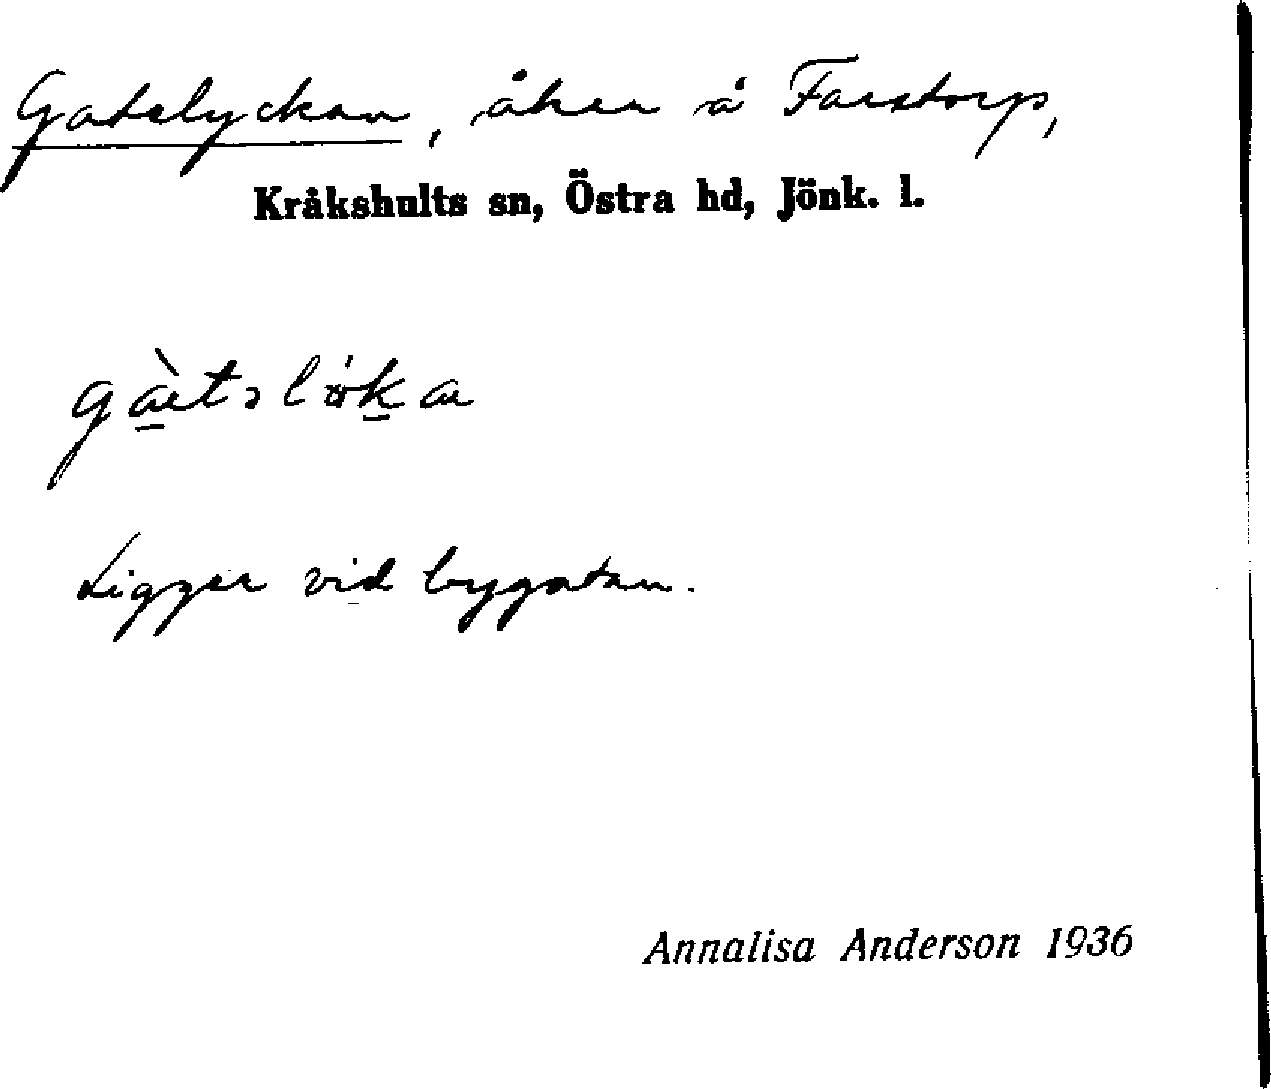 Gatelyckan, åker å Farstorp,
Kråkshults sn, Östra hd, Jönk. l.
Ligger vid bygatan.
Annalisa Anderson 1936